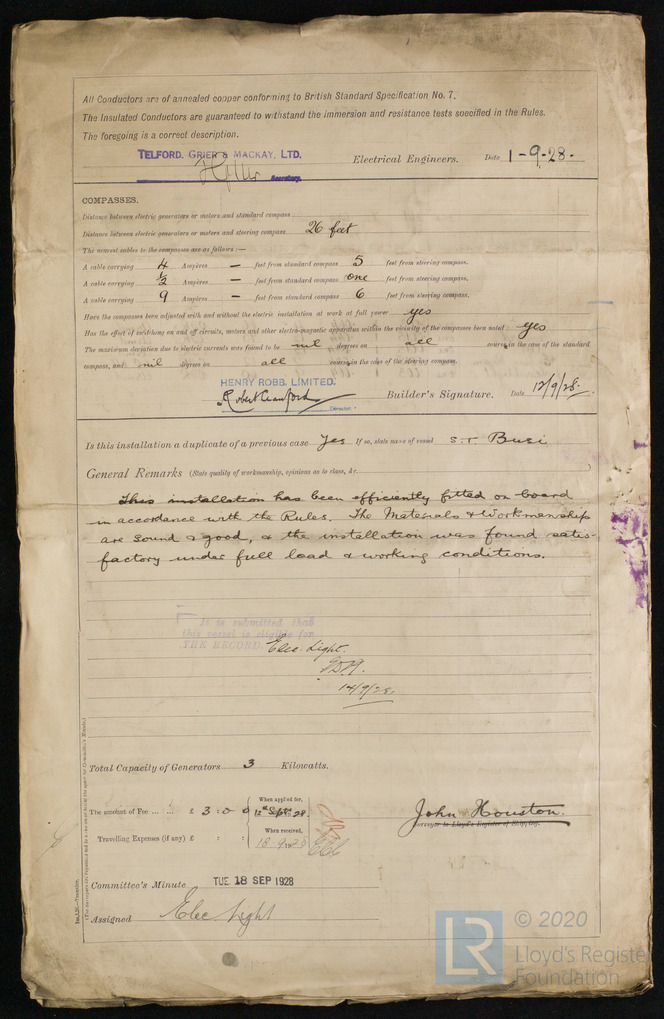 All Conductors are of annealed copper conforming to British Standard Specification No. 7.
The Insulated Conductors are guaranteed to withstand the immersion and resistance tests specified in the Rules.
The foregoing is a correct description.
TELFORD, GRIER & MACKAY, LTD. Electrical Engineers. Date 1-9-28.
Secretary.
COMPASSES.
Distance between electric generators or motors and standard compass
Distance between electric generators or motors and steering compass 26 feet
The nearest cables to the compasses are as follows:—
A cable carrying 4 Ampères — feet from standard compass 5 feet from steering compass.
A cable carrying 1/2 Ampères — feet from standard compass one feet from steering compass.
A cable carrying 9 Ampères — feet from standard compass 6 feet from steering compass.
Have the compasses been adjusted with and without the electric installation at work at full power yes
Has the effect of switching on and off circuits, motors and other electro-magnetic apparatus within the vicinity of the compasses been noted yes
The maximum deviation due to electric currents was found to be nil degrees on all course in the case of the standard
compass, and nil degrees on all course in the case of the steering compass.
HENRY ROBB, LIMITED.
Robert Crawford Builder's Signature. Date 12/9/28.
Director.
Is this installation a duplicate of a previous case Yes If so, state name of vessel S.T. Busi
General Remarks (State quality of workmanship, opinions as to class, &c.)
This installation has been efficiently fitted on board
in accordance with the Rules. The Materials & Workmanship
are sound & good, & the installation was found satis-
factory under full load & working conditions.
It is submitted that
this vessel is eligible for
THE RECORD. Elec. Light.
14/9/28.
Total Capacity of Generators 3 Kilowatts.
The amount of Fee ... £ 3 : 0 : 0 When applied for, 12th Sept. 28.
Travelling Expenses (if any) £ : : When received, 18.9.1928
John Houston.
Surveyor to Lloyd's Register of Shipping.
Committee's Minute TUE 18 SEP 1928
Assigned Elec Light
LR © 2020
Lloyd's Register
Foundation